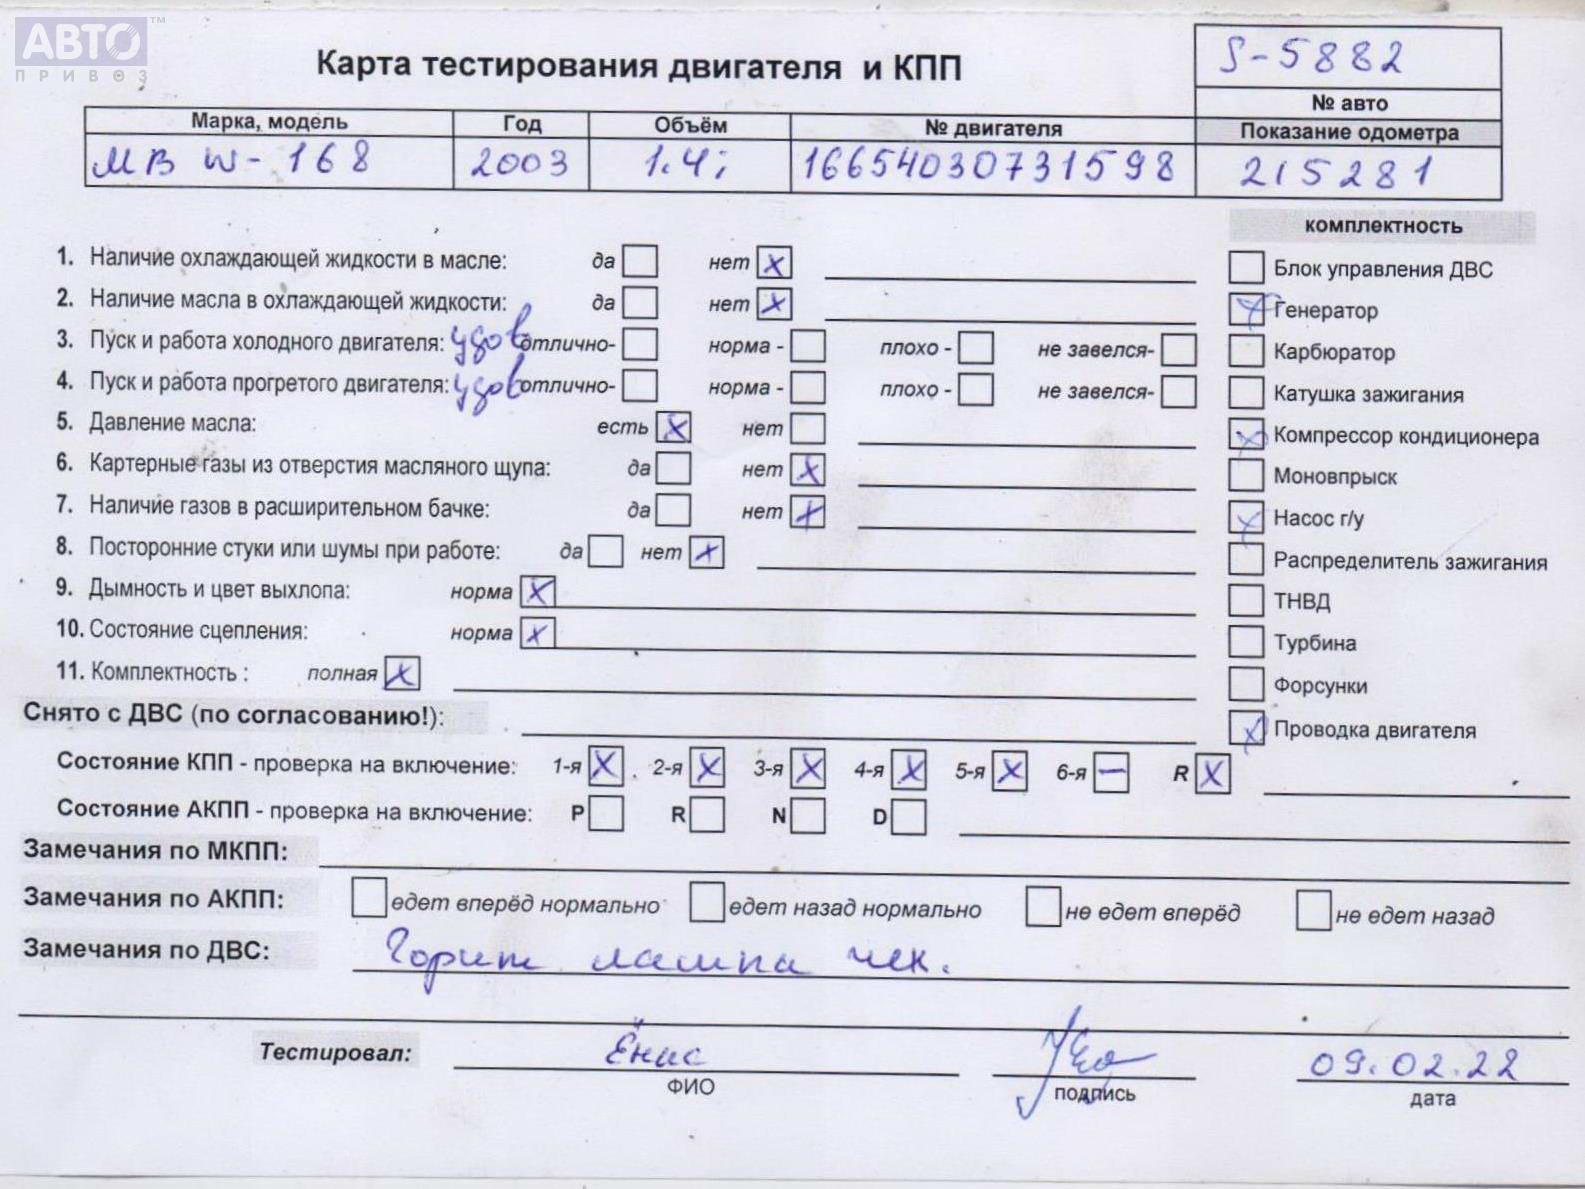 АВТО™
ПРИВОЗ
Карта тестирования двигателя и КПП
S-5882
№ авто
Марка, модель Год Объём № двигателя Показание одометра
MB W-168 2003 1.4i 16654030731598 215281
комплектность
1. Наличие охлаждающей жидкости в масле: да нет x
Блок управления ДВС
2. Наличие масла в охлаждающей жидкости: да нет x
x Генератор
3. Пуск и работа холодного двигателя: удов отлично- норма - плохо - не завелся-
Карбюратор
4. Пуск и работа прогретого двигателя: удов отлично- норма - плохо - не завелся-
Катушка зажигания
5. Давление масла: есть x нет
x Компрессор кондиционера
6. Картерные газы из отверстия масляного щупа: да нет x
Моновпрыск
7. Наличие газов в расширительном бачке: да нет x
x Насос г/у
8. Посторонние стуки или шумы при работе: да нет x
Распределитель зажигания
9. Дымность и цвет выхлопа: норма x
ТНВД
10. Состояние сцепления: норма x
Турбина
11. Комплектность : полная x
Форсунки
Снято с ДВС (по согласованию!):
x Проводка двигателя
Состояние КПП - проверка на включение: 1-я x 2-я x 3-я x 4-я x 5-я x 6-я – R x
Состояние АКПП - проверка на включение: P R N D
Замечания по МКПП:
Замечания по АКПП: едет вперёд нормально едет назад нормально не едет вперёд не едет назад
Замечания по ДВС: Горит лампа чек.
Тестировал: Ёнис 09.02.22
ФИО подпись дата